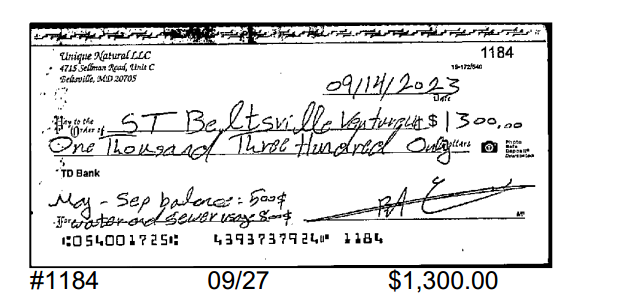 1184
Unique Natural LLC
4715 Sellman Road, Unit C
Beltsville, MD 20705
15-172/540
09/14/2023
Date
Pay to the
Order of ST Beltsville $1300.00
One Thousand Three Hundred Only Dollars
Photo
Safe
Deposit
TD Bank
May - Sep balance: 500$
For water and sewer 800$
MP
⑆054001725⑆ 4393737924⑈ 1184
#1184 09/27 $1,300.00